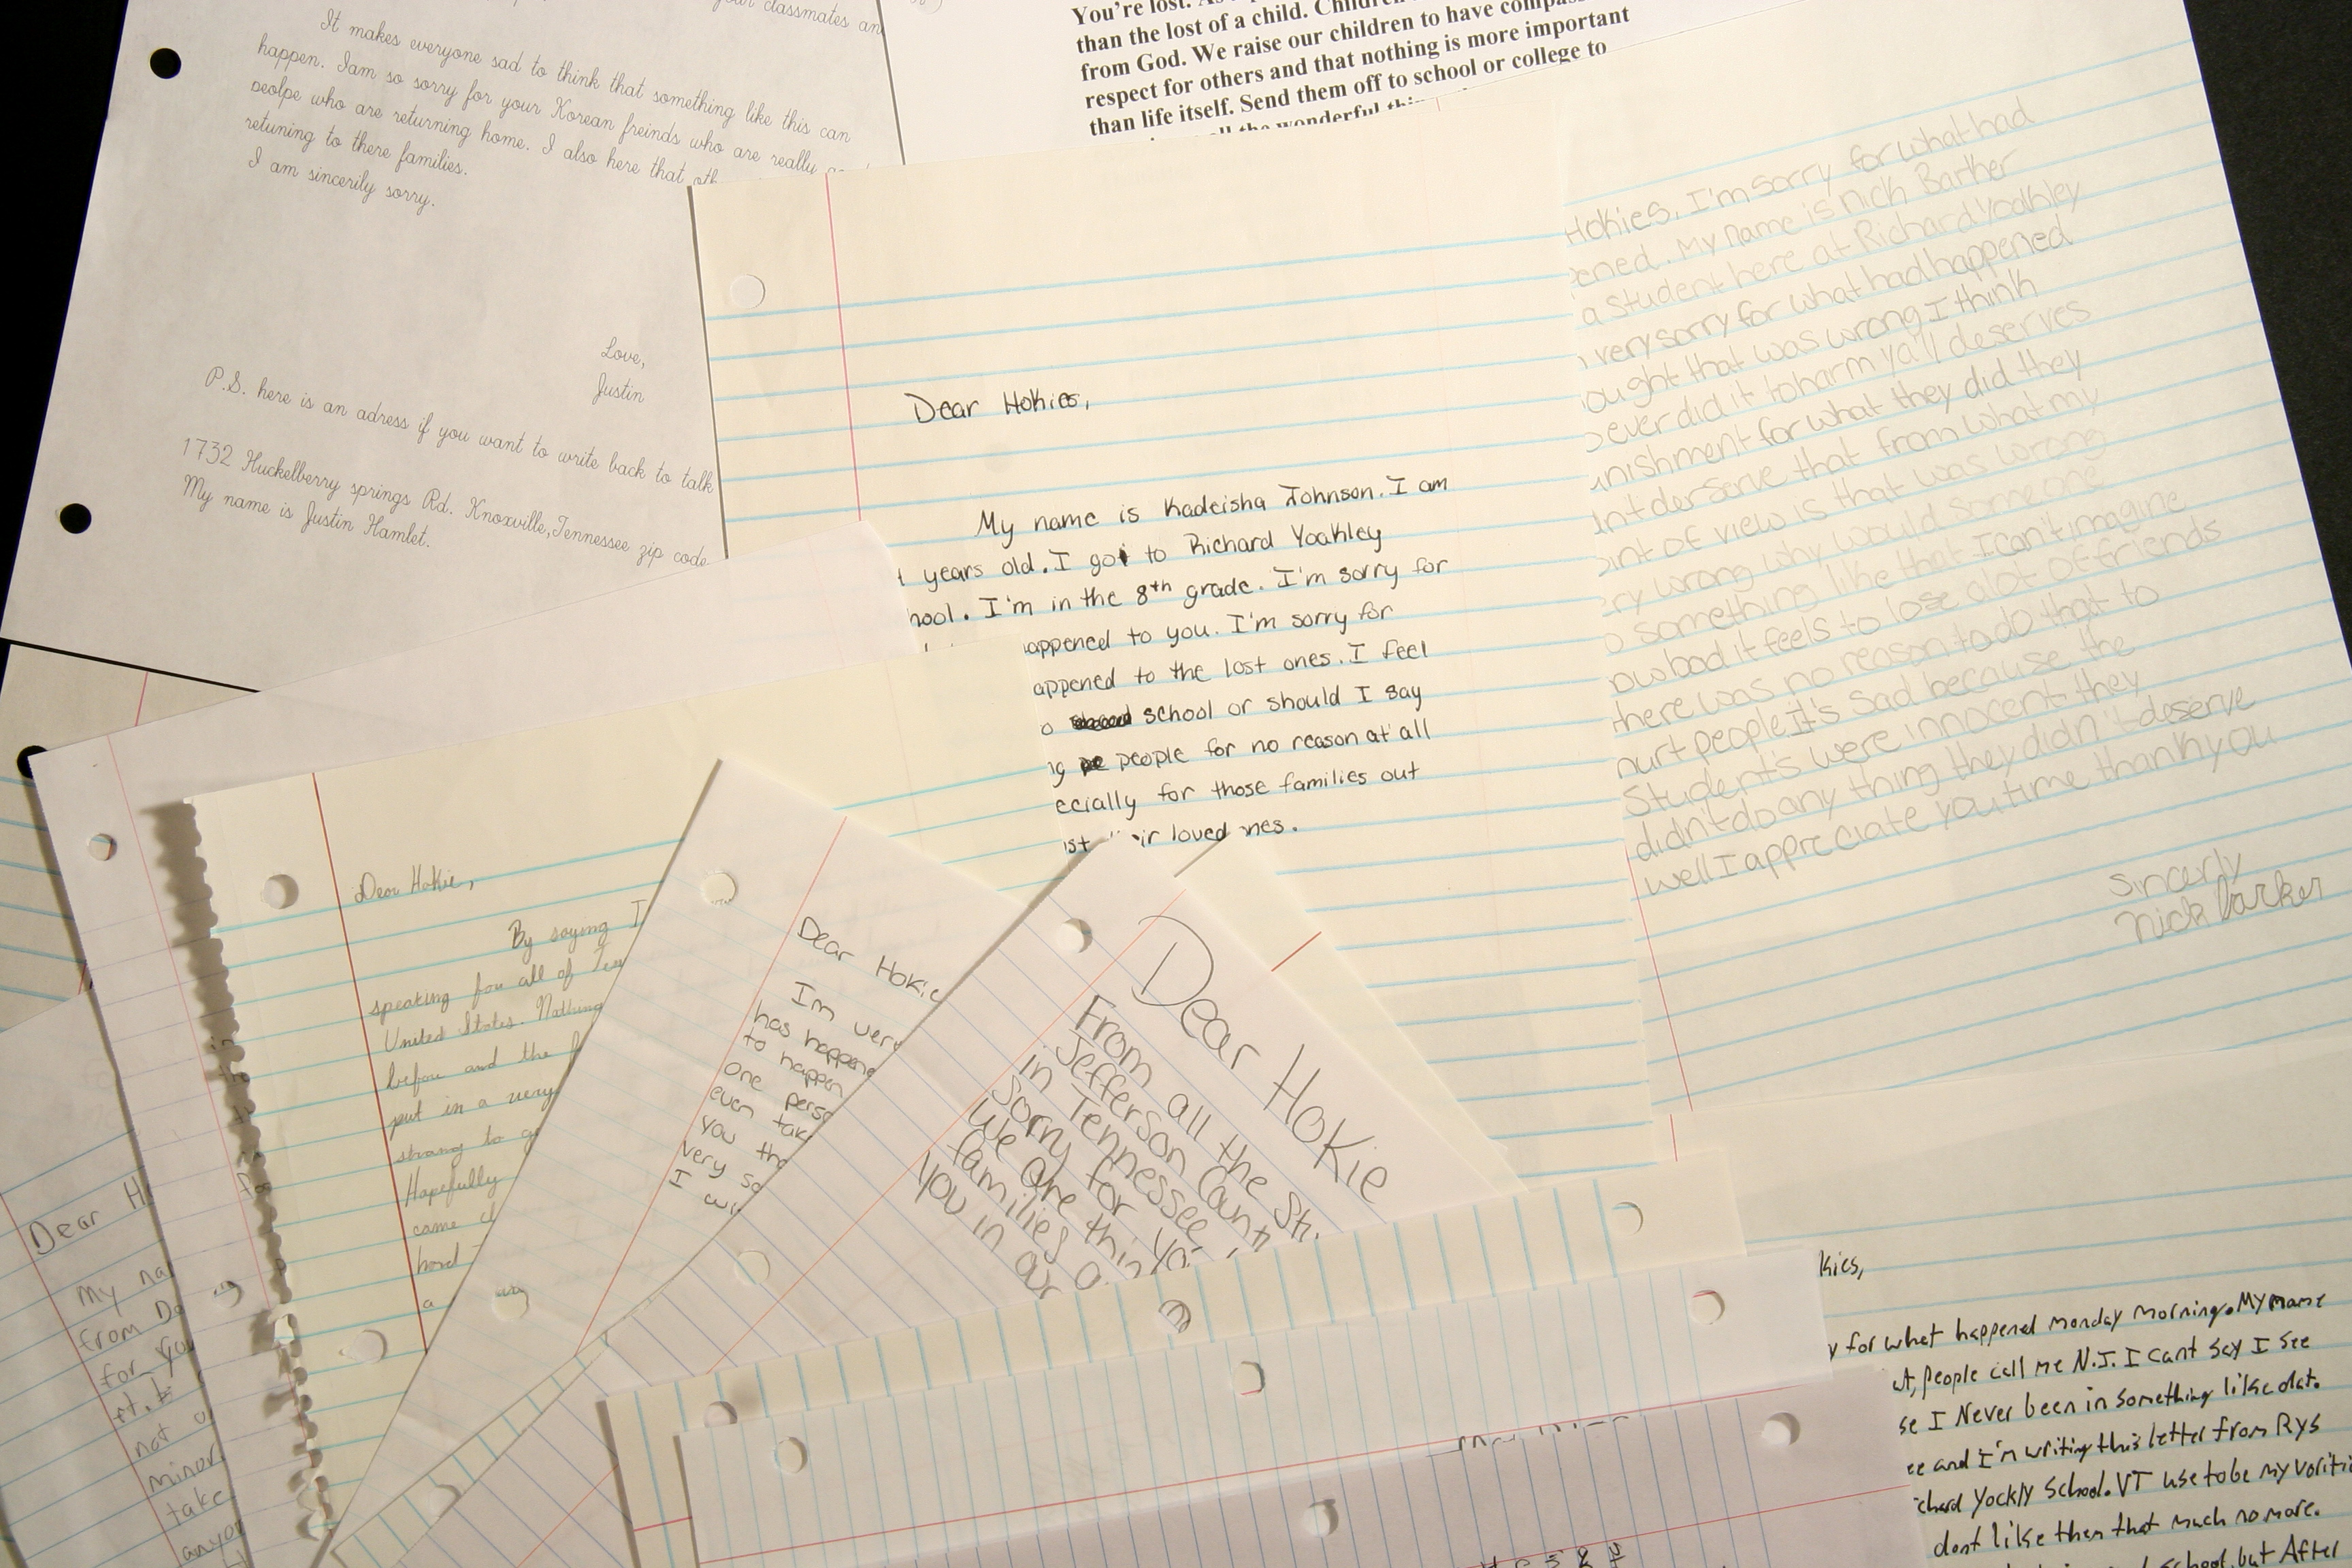 your classmates an
It makes everyone sad to think that something like this can
happen. Iam so sorry for your Korean freinds who are really
peolpe who are returning home. I also here that oth
retuning to there families.
I am sincerily sorry.
Love,
Justin
P.S. here is an adress if you want to write back to talk
1732 Huckelberry springs Rd. Knoxville, Tennessee zip code
My name is Justin Hamlet.
You're lost.
than the lost of a child.
from God. We raise our children to have compas
respect for others and that nothing is more important
than life itself. Send them off to school or college to
all the wonderful
Dear Hokies,
My name is Kadeisha Johnson. I am
years old. I go to Richard Yoakley
hool. I'm in the 8th grade. I'm sorry for
appened to you. I'm sorry for
appened to the lost ones. I feel
o school or should I say
ng people for no reason at all
ecially for those families out
ist their loved ones.
Hokies, I'm sorry for what had
ened. My name is nick Barker
a student here at Richard Yoakley
very sorry for what had happened
ought that was wrong I think
o ever did it to harm ya'll deserves
unishment for what they did they
int derserve that from what my
oint of view is that was wrong
ery wrong why would someone
o something like that I can't imagine
ow bad it feels to lose alot of friends
there was no reason to do that to
hurt people it's sad because the
Student's were innocent they
didn't do any thing they didn't deserve
well I appreciate you time thank you
sincerly
Nick Barker
Dear Hokie,
By saying I
speaking for all of
United States. Nothing
before and the
put in a very
strong to g
Hopefully
came
hard
a
Dear Hokie
Im very
has happene
to happen
one perso
even take
you tho
very so
I wi
Dear Hokie
From all the St
Jefferson Count
in Tennessee,
sorry for yo
We are thin
families a
you in our
Dear H
My na
from Da
for you
not
minor
take
anyor
kies,
y for what happened monday morning. My name
people call me N.J. I cant say I see
se I Never been in something like dat.
ee and I'm writing this letter from Rys
chard Yockly School. VT use to be my voriti
dont like them that much no more.
school, but After